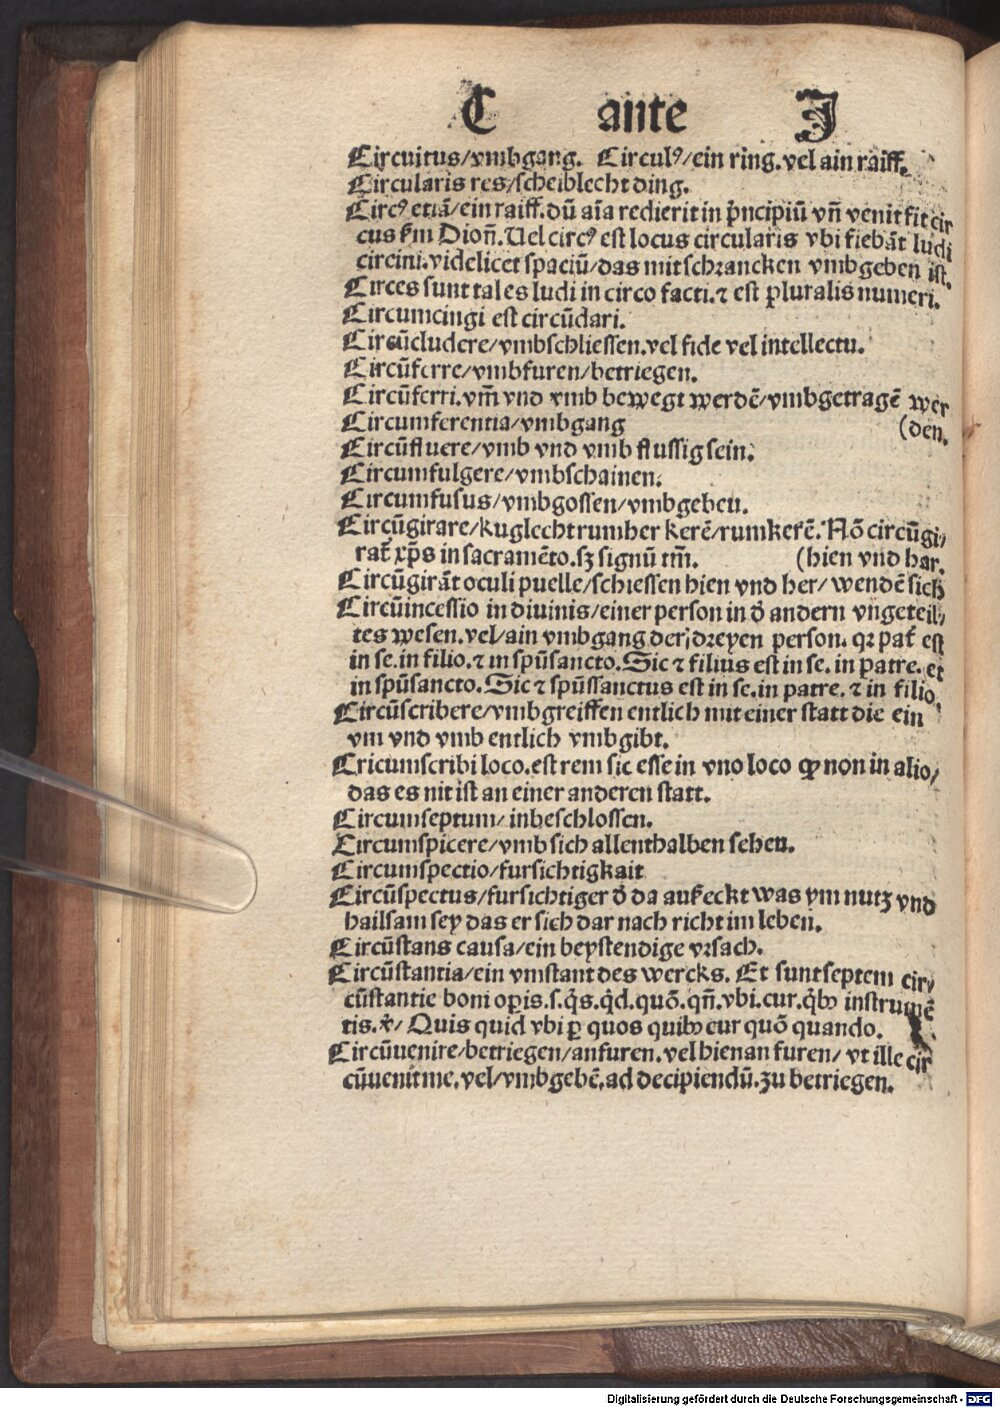 C ante J
Circuitus/vmbgang. Circulꝰ/ein ring.vel ain raiff.
Circularis res/scheiblecht ding.
Circꝰ etiā/ein raiff.dū aīa redierit in p̄ncipiū vn̄ venit fit cir
cus s̄m Dion̄.Uel circꝰ est locus circularis vbi fiebāt ludi
circini.videlicet spaciū/das mit schrancken vmbgeben ist.
Circes sunt tales ludi in circo facti.⁊ est pluralis numeri.
Circumcingi est circūdari.
Circūcludere/vmbschliessen.vel fide vel intellectu.
Circūferre/vmbfuren/betriegen.
Circūferri.vm̄ vnd vmb bewegt werdē/vmbgetragē wer
Circumferentia/vmbgang (den.
Circūfluere/vmb vnd vmb flussig sein.
Circumfulgere/vmbschainen.
Circumfusus/vmbgossen/vmbgeben.
Circūgirare/kuglecht rumher kerē/rumkerē.Nō circūgi/
rat̄ xp̄s in sacramēto.sꝫ signū tm̄. (hien vnd har.
Circūgirāt oculi puelle/schiessen hien vnd her/wendē sich
Circūincessio in diuinis/einer person in d̄ andern vngeteil/
tes wesen.vel/ain vmbgang der dreyen person. qꝛ pat̄ est
in se.in filio.⁊ in spūsancto.Sic ⁊ filius est in se. in patre. et
in spūsancto.Sic ⁊ spūssanctus est in se.in patre. ⁊ in filio.
Circūscribere/vmbgreiffen entlich mit einer statt die ein
vm vnd vmb entlich vmbgibt.
Cricumscribi loco.est rem sic esse in vno loco ꝙ non in alio/
das es nit ist an einer anderen statt.
Circumseptum/inbeschlossen.
Circumspicere/vmb sich allenthalben sehen.
Circumspectio/fursichtigkait
Circūspectus/fursichtiger d̄ da aufeckt was ym nutz vnd
hailsam sey das er sich dar nach richt im leben.
Circūstans causa/ein beystendige vrsach.
Circūstantia/ein vmstant des wercks. Et sunt septem cir/
cūstantie boni oꝑis.s.q̇s.q̇d.quō.qn̄.vbi.cur.q̇bꝫ instrumē
tis. Quis quid vbi ꝑ quos quibꝫ cur quō quando.
Circūuenire/betriegen/anfuren.vel hienan furen/ vt ille cir
cūuenit me.vel/vmbgebē.ad decipiendū.zu betriegen.
Digitalisierung gefördert durch die Deutsche Forschungsgemeinschaft - DFG